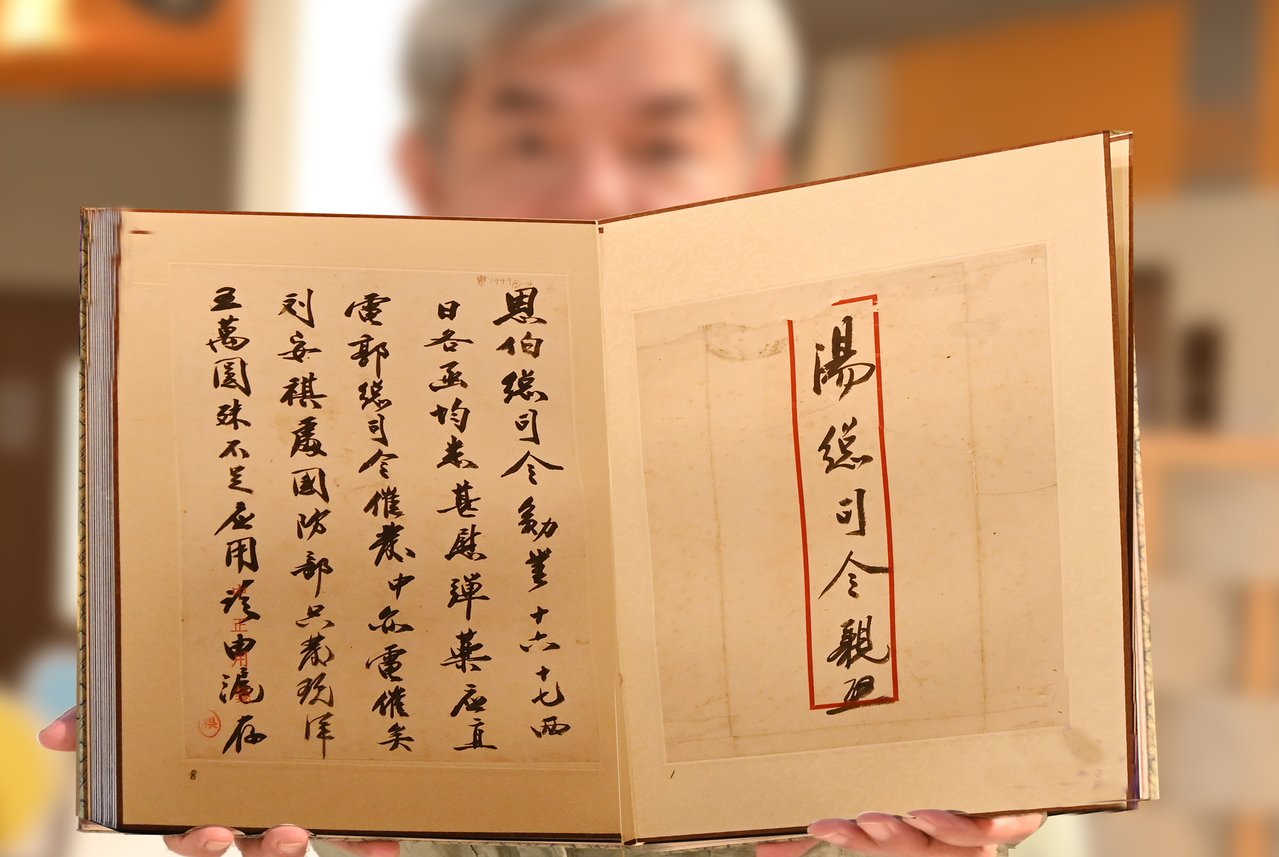 湯總司令親啟
恩伯總司令勳鑒十六十七兩
日各函均悉甚慰彈藥应直
電郭總司令催發中亦電催矣
刘安祺處國防部只發現洋
五萬圓殊不足应用茲由滬存
8